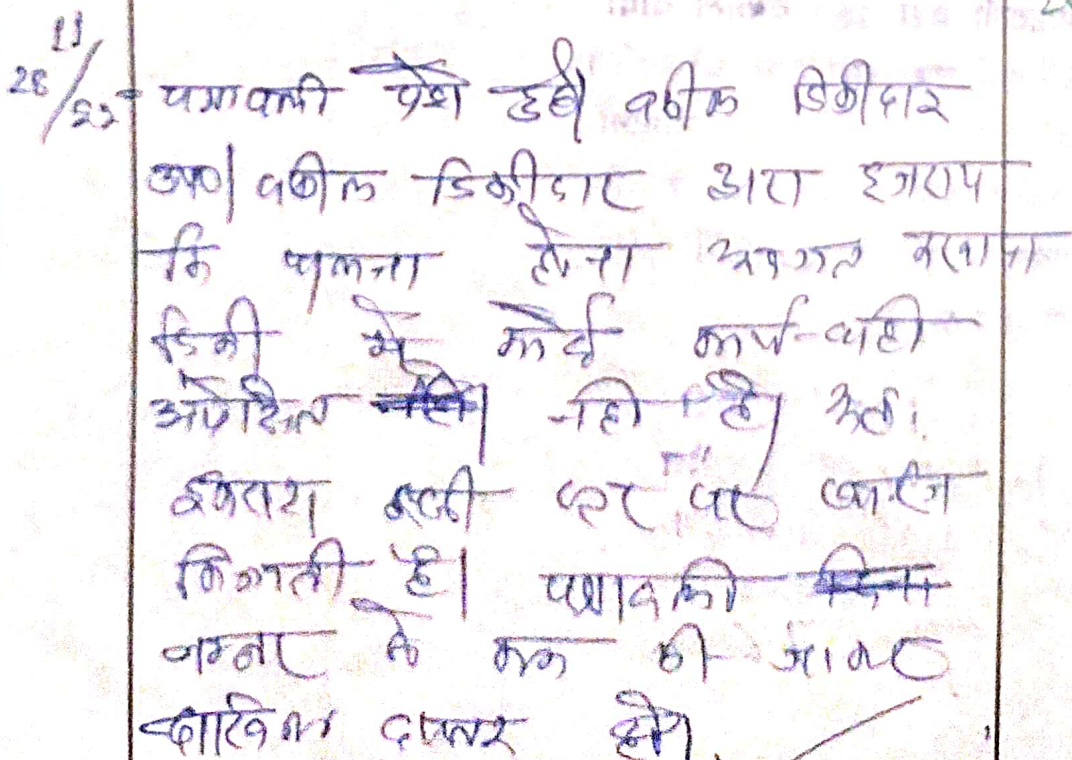 28/11/22 पत्रावली पेश हुई। वकील डिक्रीदार
उप०। वकील डिक्रीदार द्वारा इजराय
कि चलना होना
डिक्री में कोई कार्यवाही
अपेक्षित नही है। अतः
इजराय इसी स्तर पर खारिज
की जाती है। पत्रावली
नम्बर से कम की जाकर
दाखिल दफ्तर होवे।